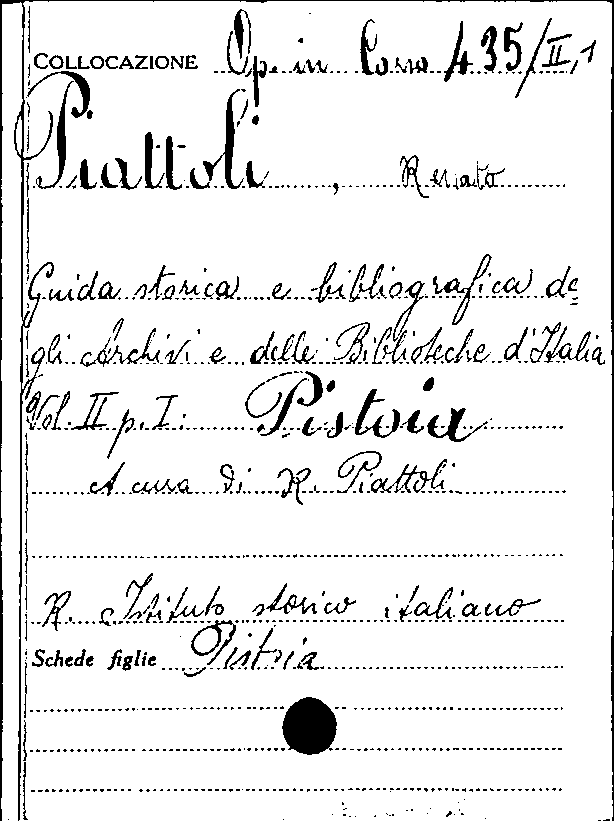 COLLOCAZIONE Op. in Corso 435/II,1
Piattoli, Renato
Guida storica e bibliografica de=
gli Archivi e delle Biblioteche d'Italia
Vol. II p. I. Pistoia
A cura di R. Piattoli
R. Istituto storico italiano
Schede figlie Pistoia